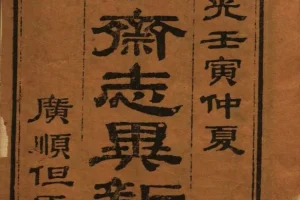 光壬寅仲夏
齋志異新
廣順但氏